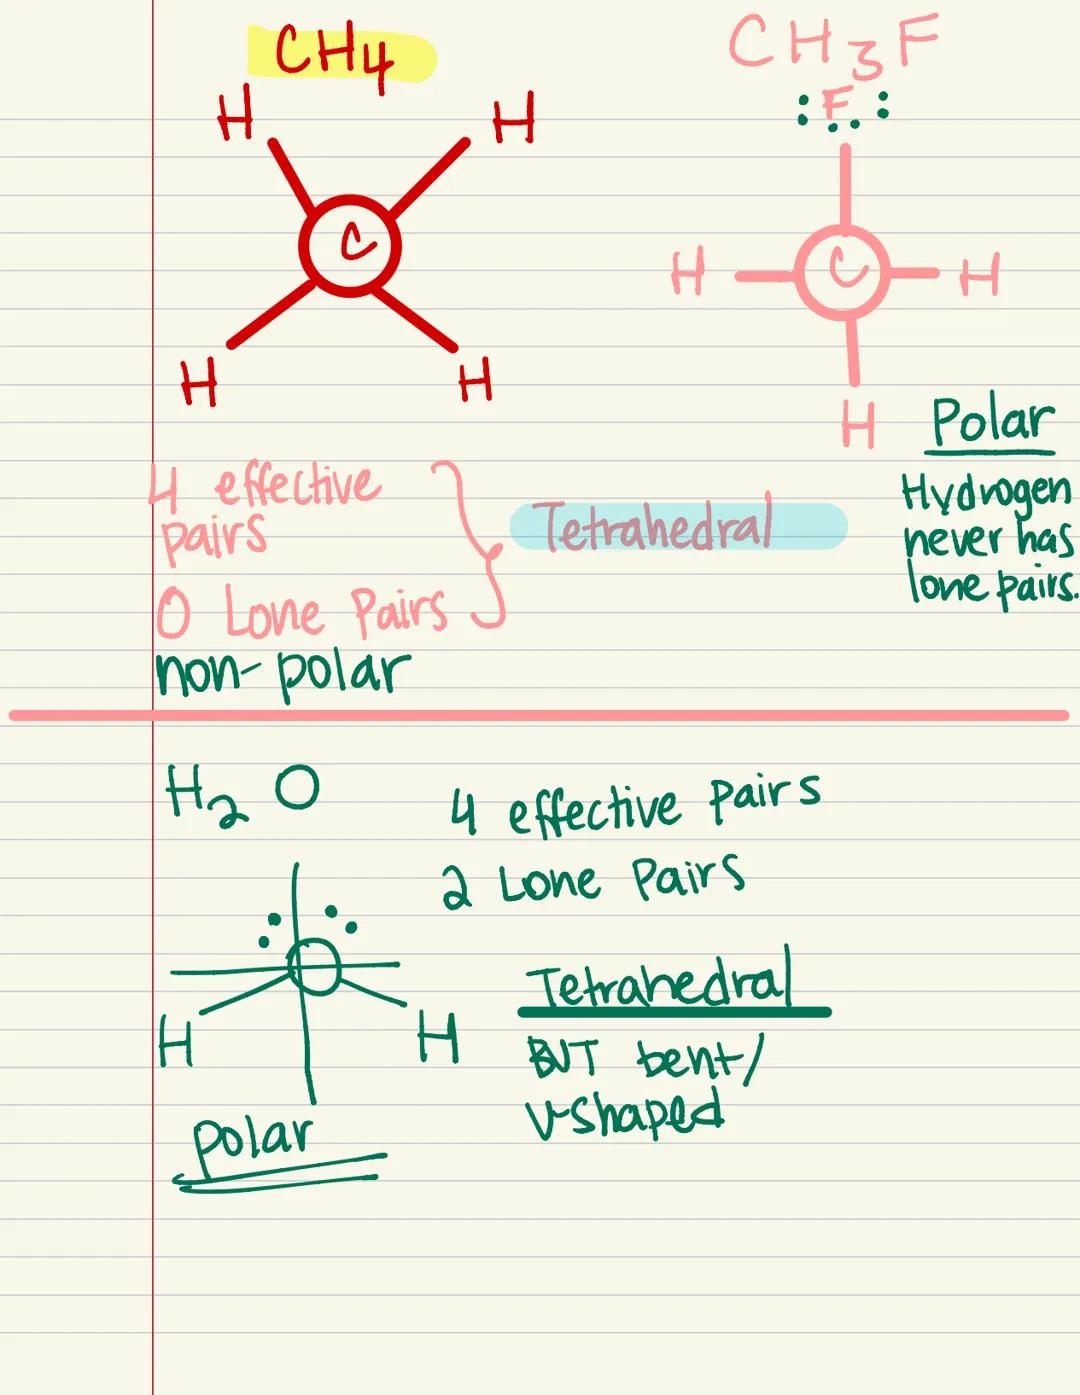 CH4
H H
C
H H
4 effective
pairs
0 Lone Pairs
Tetrahedral
non-polar
CH3F
:F:
H C H
H
Polar
Hydrogen
never has
lone pairs.
H2O
4 effective Pairs
2 Lone Pairs
H H
Tetrahedral
BUT bent/
V-shaped
polar